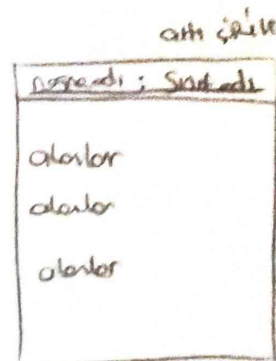 nesne adı : Sınıf adı
alanlar
alanlar
alanlar